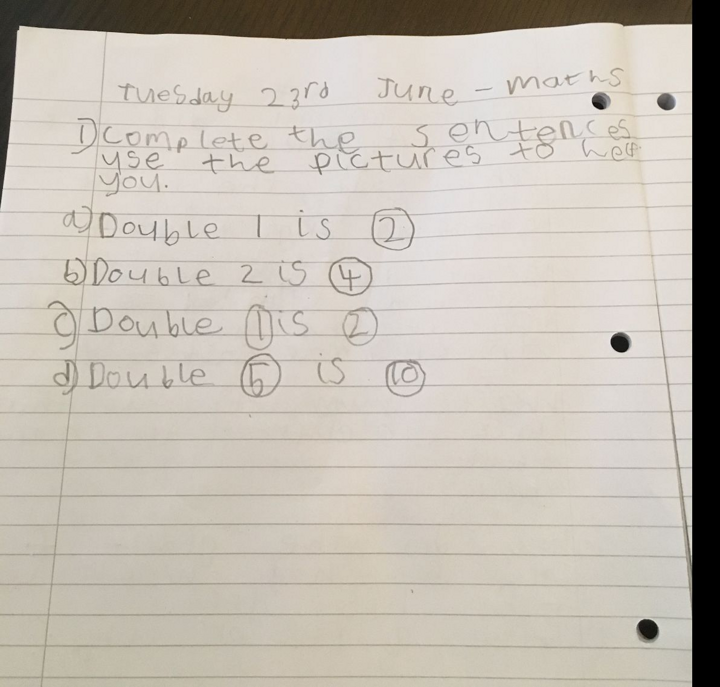 Tuesday 23rd June - maths
1) complete the sentences
use the pictures to help
you.
a) Double 1 is 2
b) Double 2 is 4
c) Double 1 is 2
d) Double 5 is 10